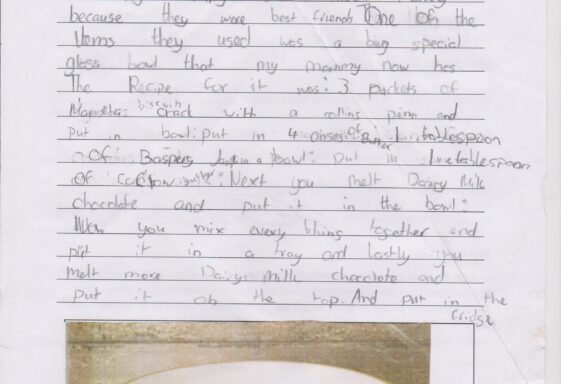 because they were best friends One of the
items they used was a big special
glass bowl that my mammy now has
The Recipe for it was: 3 packets of
biscuits crack with a rolling penn and
put in bowl: put in 4 of Butter tablespoon
Of bowl: put in tablespoon
Of Next you melt Dairy Milk
chocolate and put it in the bowl:
Now you mix every thing together and
put it in a tray and lastly you
melt more Dairy milk chocolate and
put it on the top. And put in the
fridge